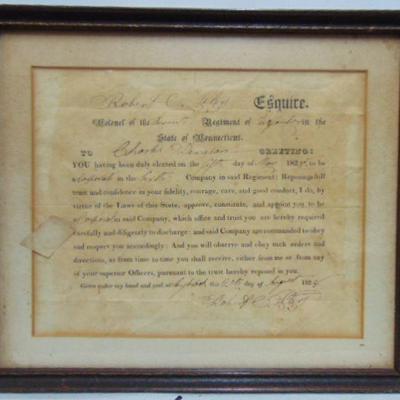 Robert Esquire.
Colonel of the Regiment of in the
State of Connecticut.
TO Charles GREETING:
YOU having been duly elected on the day of May 182 to be
Corporal in the Company in said Regiment: Reposing full
trust and confidence in your fidelity, courage, care, and good conduct, I do, by
virtue of the Laws of this State, approve, constitute, and appoint you to be
Corporal in said Company, which office and trust you are hereby required
carefully and diligently to discharge: and said Company are commanded to obey
and respect you accordingly: And you will observe and obey such orders and
directions, as from time to time you shall receive, either from me or from any
of your superior Officers, pursuant to the trust hereby reposed in you.
Given under my hand and seal at this day of August 182